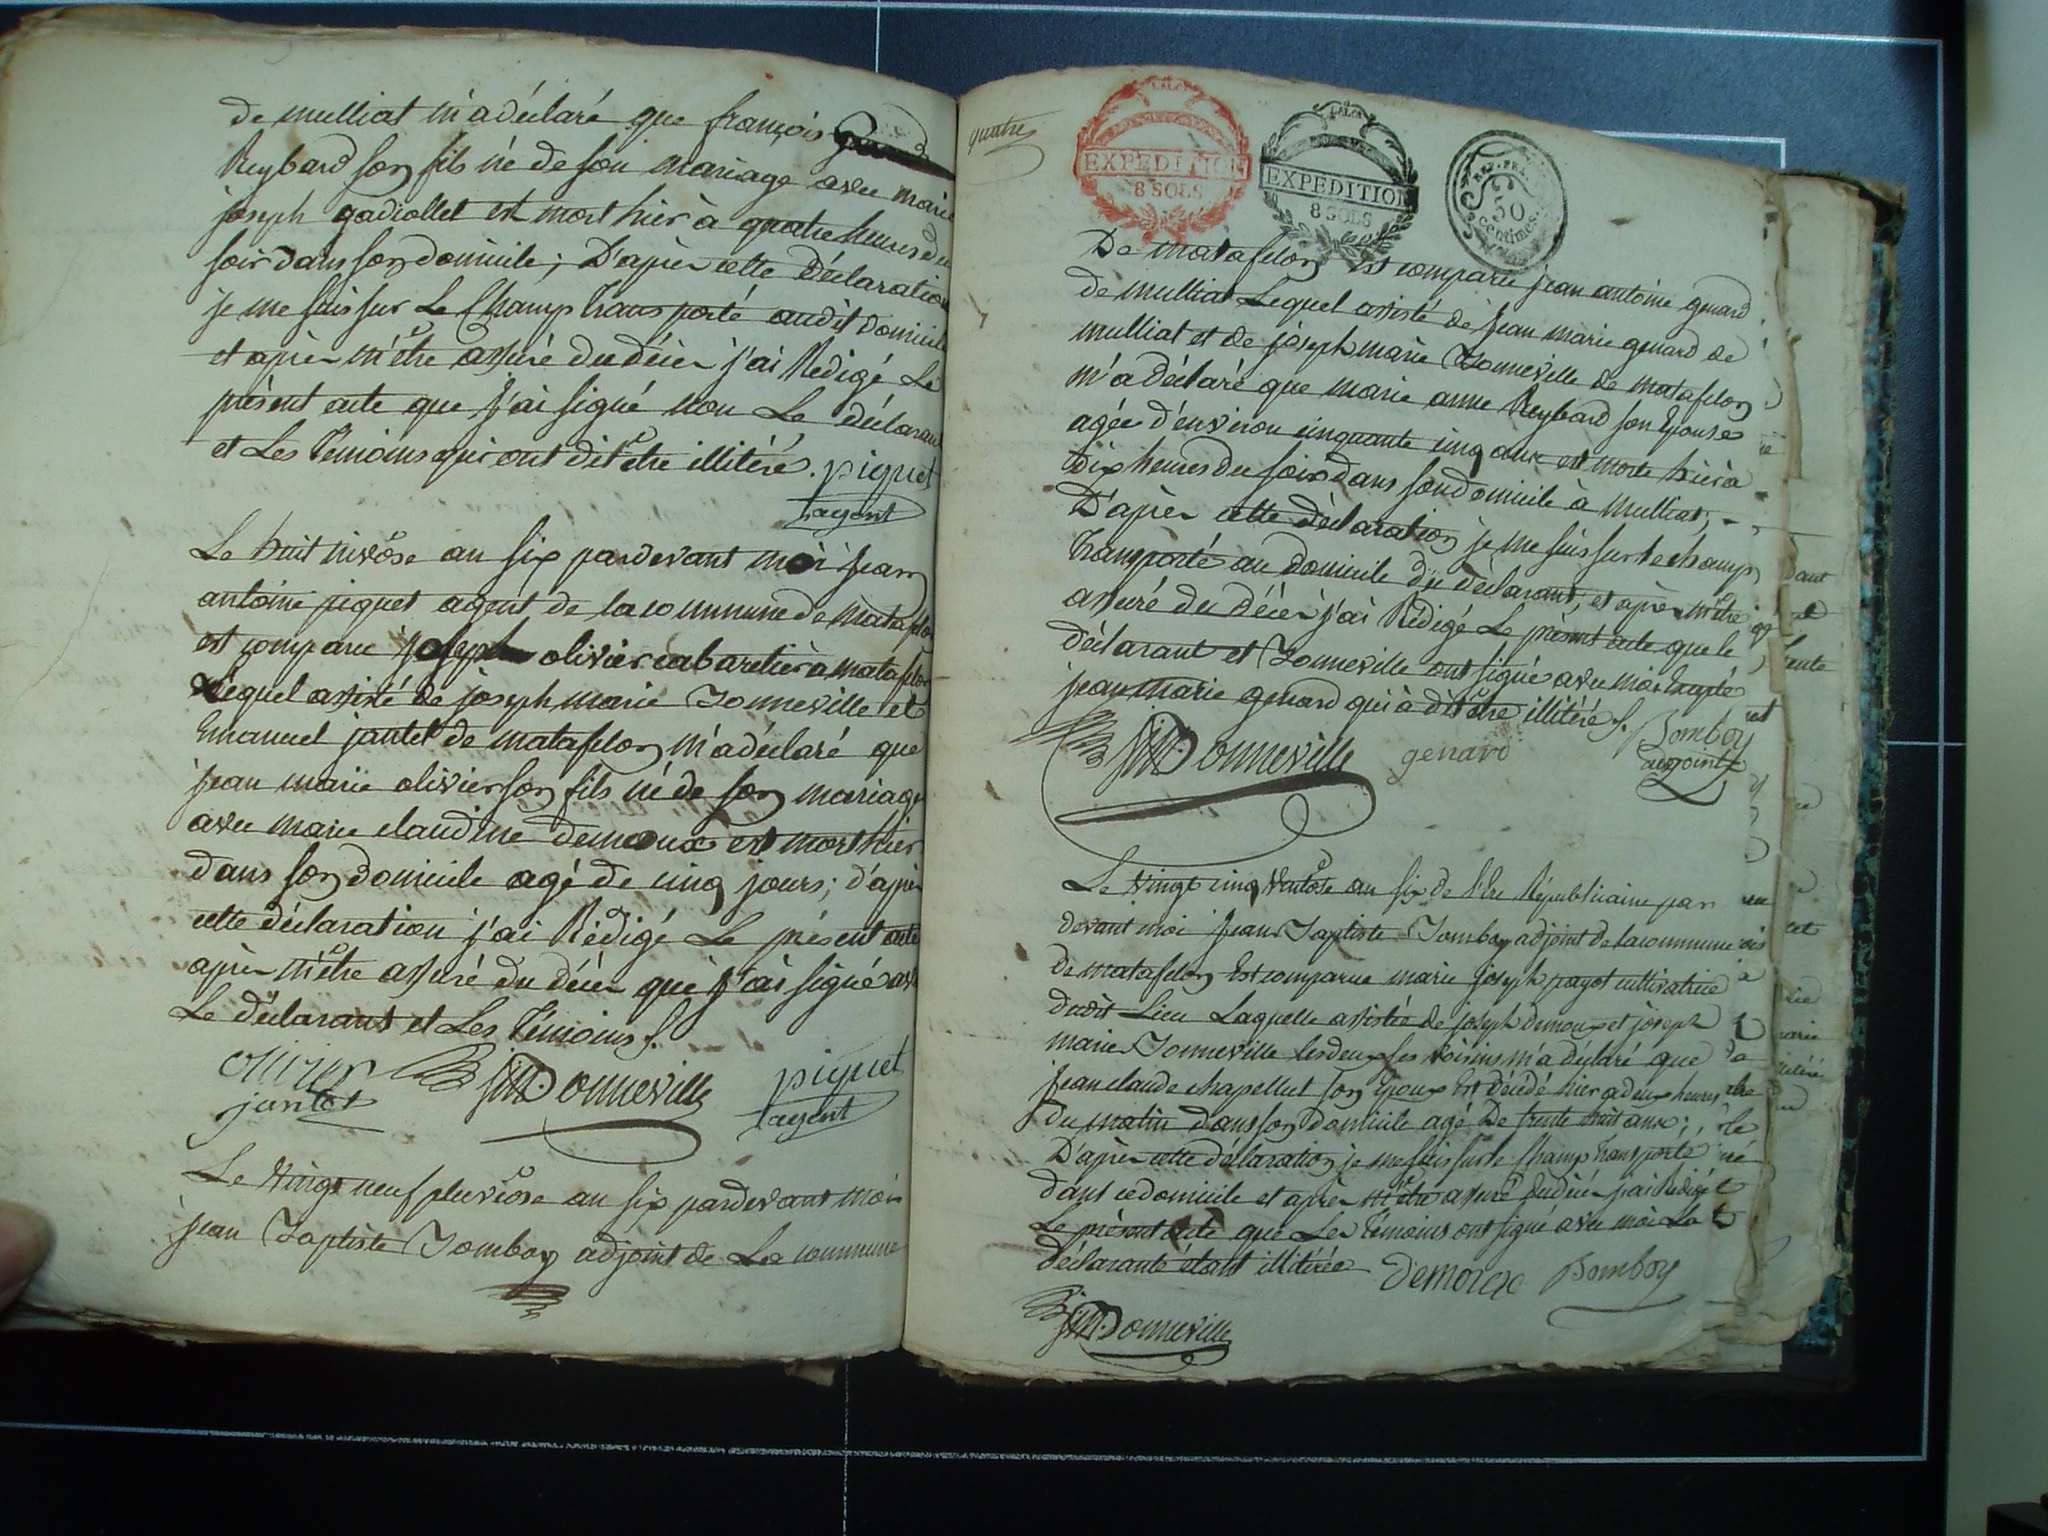 de mulliat m'a déclaré que françois
Reybard son fils né de son mariage avec marie
joseph gadiollet est mort hier à quatre heures du
soir dans son domicile; D'après cette Déclaration
je me suis sur Le Champ transporté audit domicile
et après m'être assuré du décès j'ai Rédigé Le
présent acte que j'ai signé non Le déclarant
et Les Témoins qui ont dit être illitéré. piquet
agent
Le huit nivôse an six pardevant moi jean
antoine piquet agent de la commune de matafelon
est comparu joseph olivier cabaretier à matafelon
Lequel assisté de joseph marie Donneville et
Emanuel jantet de matafelon m'a déclaré que
jean marie olivier son fils né de son mariage
avec marie claudine demoux est mort hier
dans son domicile agé de cinq jours; d'après
cette déclaration j'ai Rédigé Le présent acte
après m'être assuré du décès que j'ai signé avec
Le déclarant et Les Témoins.
olivier JM. Donneville piquet
jantet agent
Le vingt neuf pluviôse an six pardevant moi
jean Baptiste Bomboy adjoint de La commune
quatre
EXPEDITION
8 SOLS
EXPEDITION
8 SOLS
REP. FRA.
50
Centimes
De matafelon est comparu jean antoine genard
de mulliat Lequel assisté de jean marie genard de
mulliat et de joseph marie Donneville de matafelon
m'a déclaré que marie anne Reybard son Epouse
agée d'environ cinquante cinq ans est morte hier à
dix heures du soir dans son domicile à mulliat;
D'après cette déclaration je me suis sur le champ
transporté au domicile du déclarant, et après m'être
assuré du décès j'ai Rédigé Le présent acte que le
déclarant et Donneville ont signé avec moi Excepté
jean marie genard qui à dit être illitéré.
JM. Donneville genard Bomboy
adjoint
Le vingt cinq ventôse an six de l'Ere Républicaine par
devant moi Jean Baptiste Bomboy adjoint de la commune
de matafelon Est comparue marie joseph payot cultivatrice
dudit Lieu Laquelle assistée de joseph demoux et joseph
marie Donneville les deux ses voisins m'a déclaré que
jean claude chapellut son Epoux Est décédé hier a deux heures
du matin dans son domicile agé De trente huit ans;
D'après cette déclaration je me suis sur le Champ transporté
dans ce domicile et après m'être assuré du décès j'ai Rédigé
Le présent acte que Les Témoins ont signé avec moi La
déclarante étant illitérée Demoux Bomboy
JM. Donneville